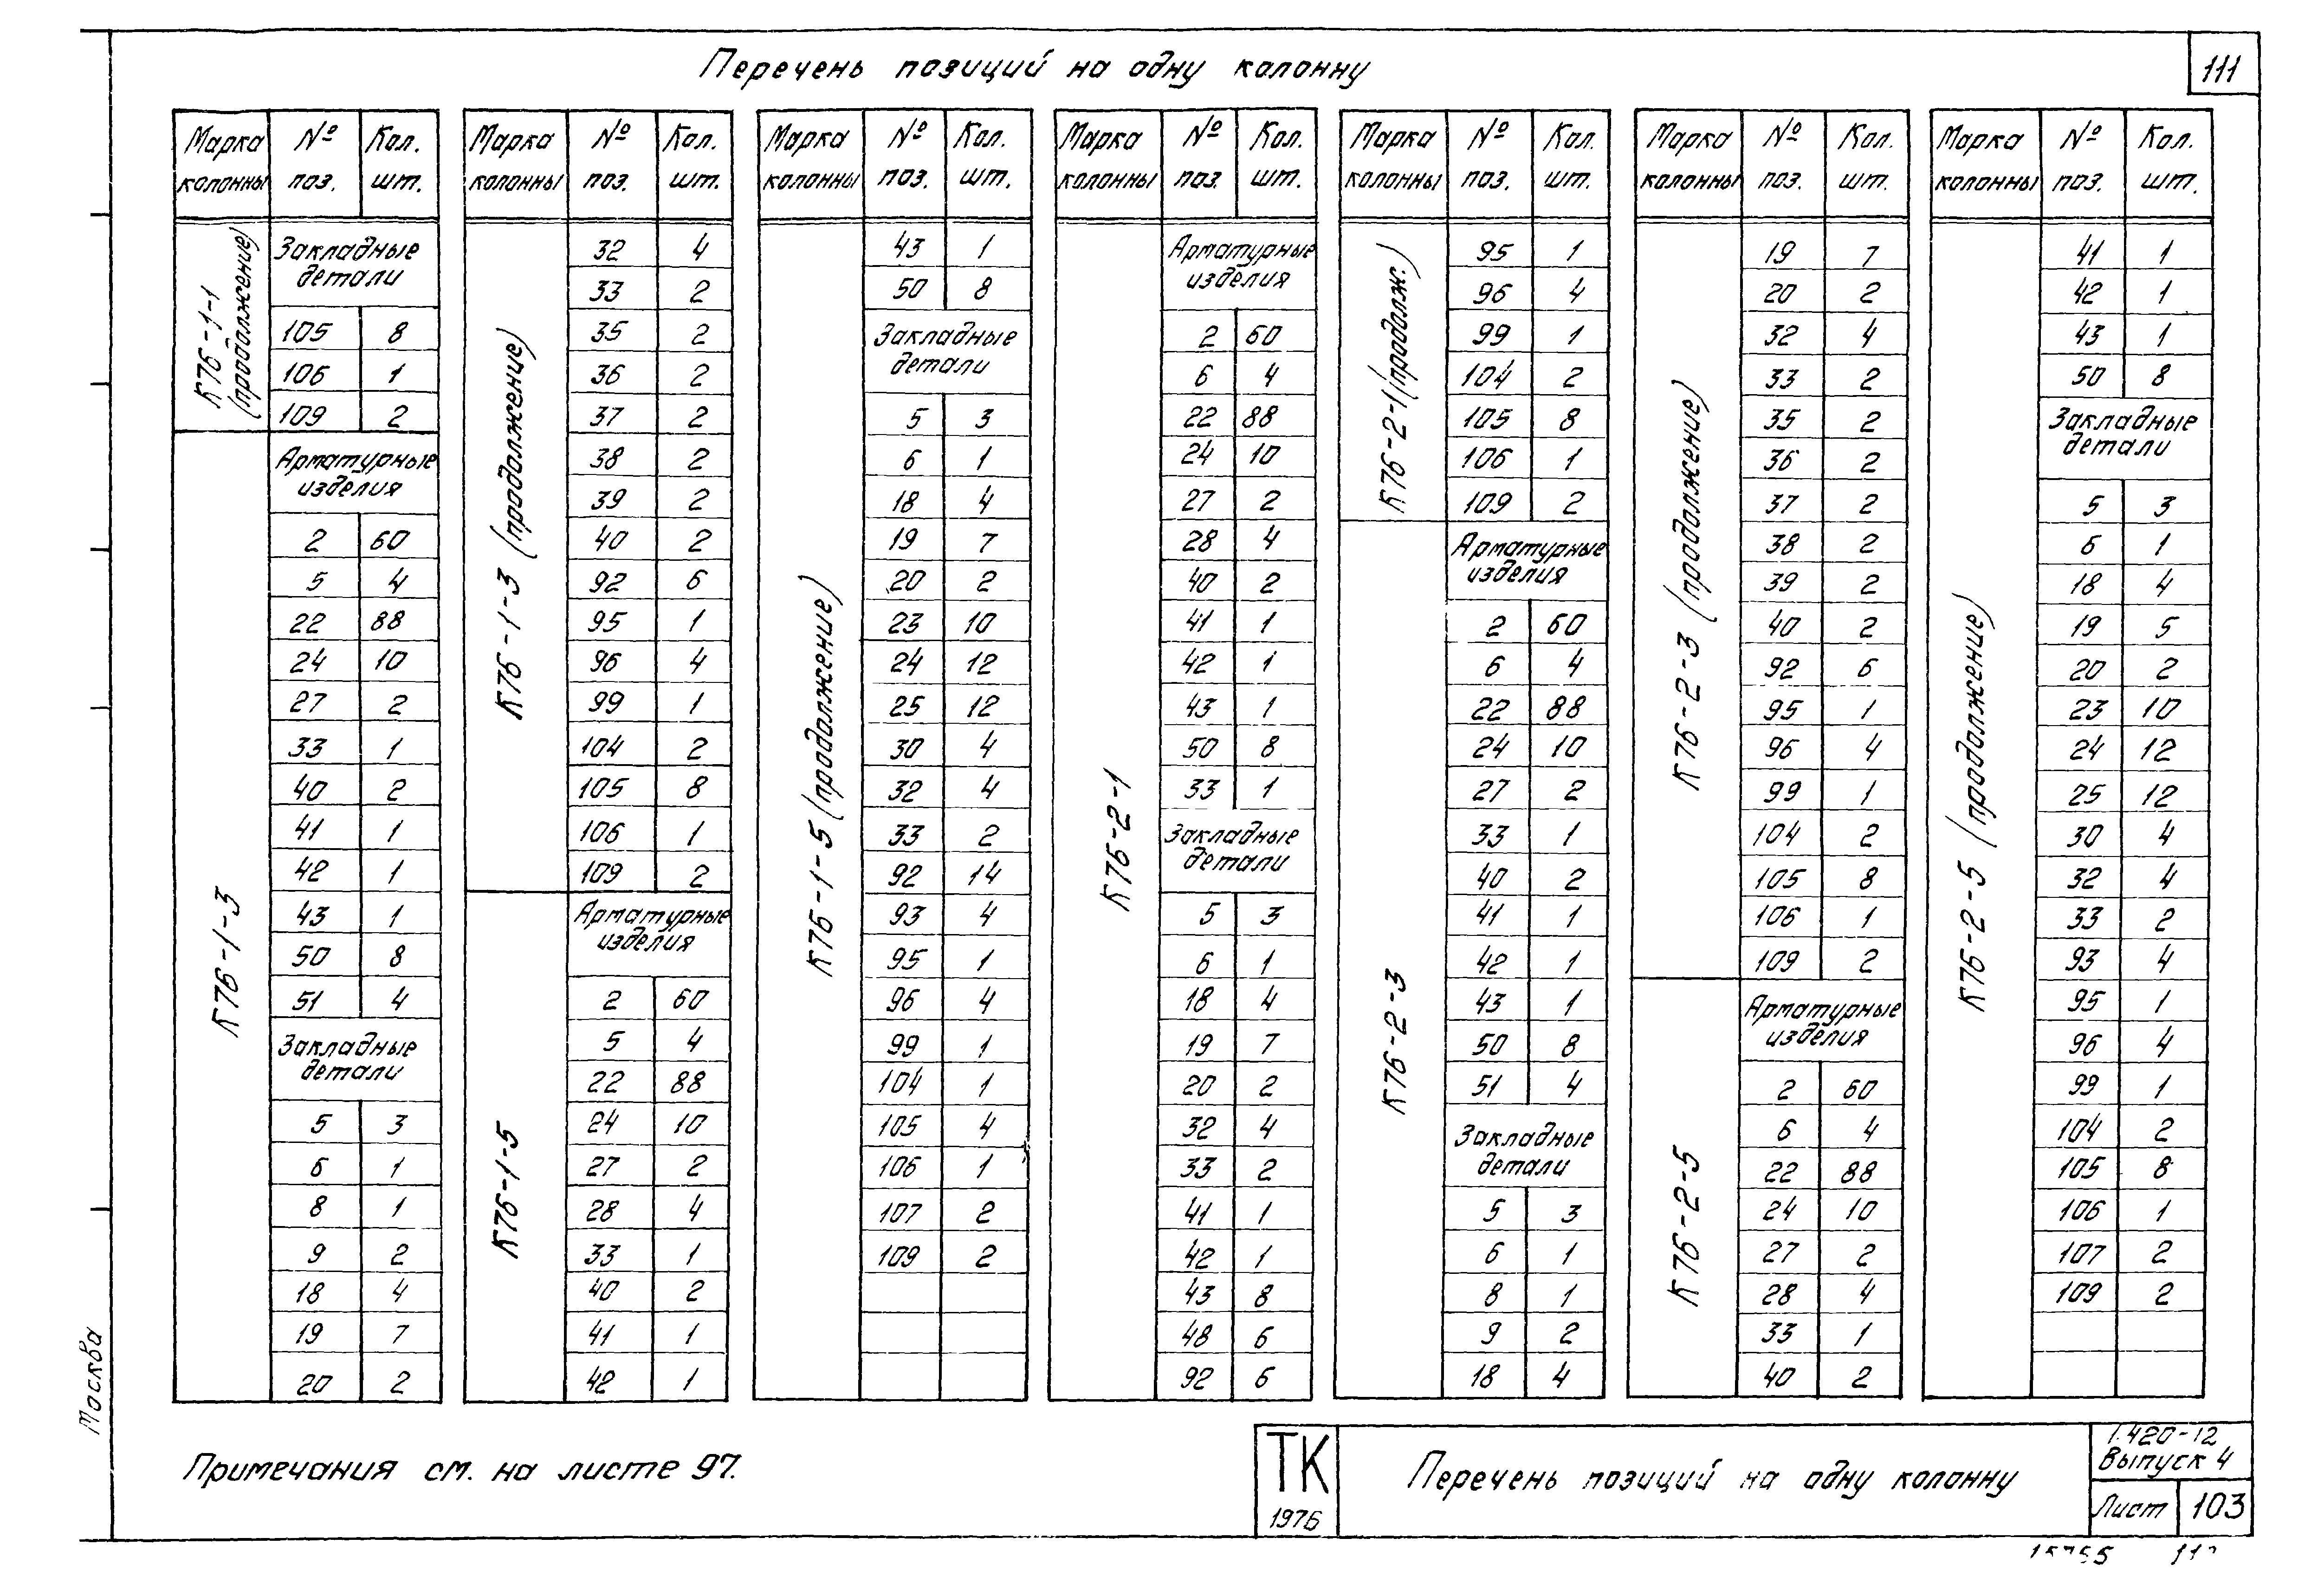 111
Перечень позиций на одну колонну
Марка колонны | № поз. | Кол. шт.
К7б-1-1 (продолжение)
Закладные детали
105 8
106 1
109 2
К7б-1-3
Арматурные изделия
2 60
5 4
22 88
24 10
27 2
33 1
40 2
41 1
42 1
43 1
50 8
51 4
Закладные детали
5 3
6 1
8 1
9 2
18 4
19 7
20 2
Марка колонны | № поз. | Кол. шт.
К7б-1-3 (продолжение)
32 4
33 2
35 2
36 2
37 2
38 2
39 2
40 2
92 6
95 1
96 4
99 1
104 2
105 8
106 1
109 2
К7б-1-5
Арматурные изделия
2 60
5 4
22 88
24 10
27 2
28 4
33 1
40 2
41 1
42 1
Марка колонны | № поз. | Кол. шт.
К7б-1-5 (продолжение)
43 1
50 8
Закладные детали
5 3
6 1
18 4
19 7
20 2
23 10
24 12
25 12
30 4
32 4
33 2
92 14
93 4
95 1
96 4
99 1
104 1
105 4
106 1
107 2
109 2
Марка колонны | № поз. | Кол. шт.
К7б-2-1
Арматурные изделия
2 60
6 4
22 88
24 10
27 2
28 4
40 2
41 1
42 1
43 1
50 8
33 1
Закладные детали
5 3
6 1
18 4
19 7
20 2
32 4
33 2
41 1
42 1
43 8
48 6
92 6
Марка колонны | № поз. | Кол. шт.
К7б-2-1 (продолж.)
95 1
96 4
99 1
104 2
105 8
106 1
109 2
К7б-2-3
Арматурные изделия
2 60
6 4
22 88
24 10
27 2
33 1
40 2
41 1
42 1
43 1
50 8
51 4
Закладные детали
5 3
6 1
8 1
9 2
18 4
Марка колонны | № поз. | Кол. шт.
К7б-2-3 (продолжение)
19 7
20 2
32 4
33 2
35 2
36 2
37 2
38 2
39 2
40 2
92 6
95 1
96 4
99 1
104 2
105 8
106 1
109 2
К7б-2-5
Арматурные изделия
2 60
6 4
22 88
24 10
27 2
28 4
33 1
40 2
Марка колонны | № поз. | Кол. шт.
К7б-2-5 (продолжение)
41 1
42 1
43 1
50 8
Закладные детали
5 3
6 1
18 4
19 5
20 2
23 10
24 12
25 12
30 4
32 4
33 2
93 4
95 1
96 4
99 1
104 2
105 8
106 1
107 2
109 2
Москва
Примечания см. на листе 97.
ТК
1976
Перечень позиций на одну колонну
1.420-12
Выпуск 4
Лист 103